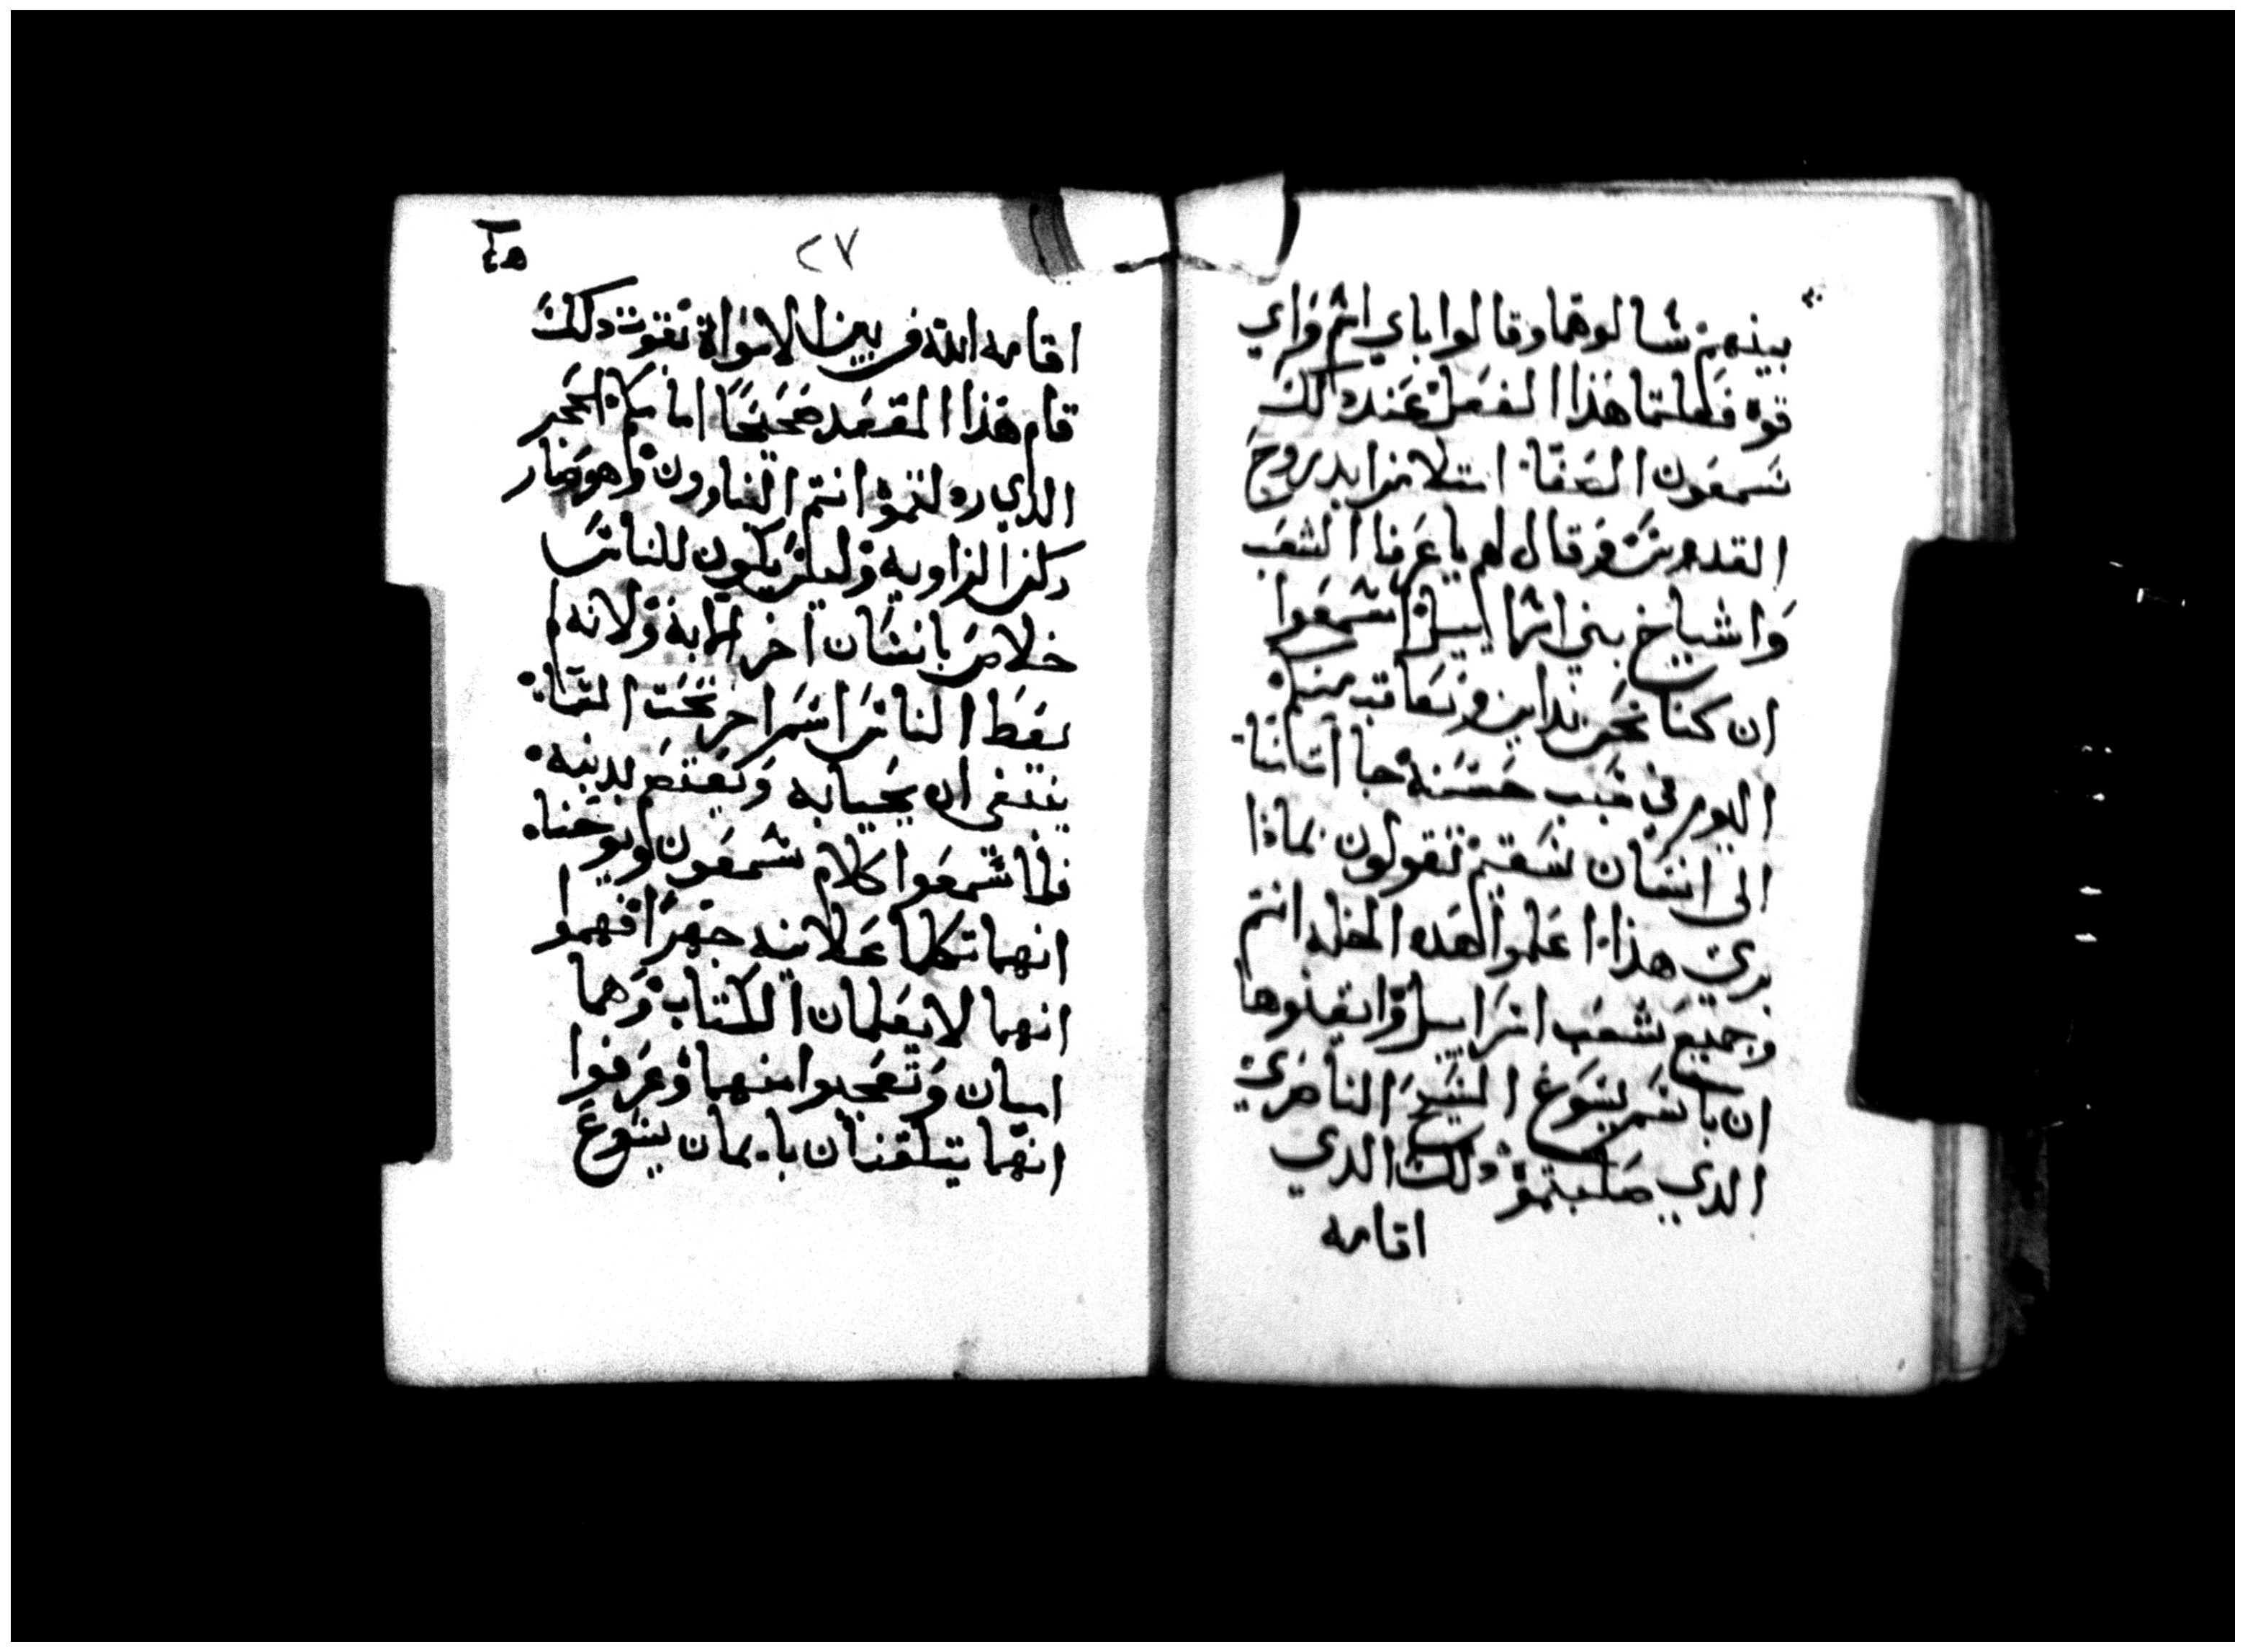 بينهم سالوهما وقالوا باي اسم واي
قوة فعلتما هذا الفعل عند دلك
سمعون الصفا امتلا من ايد روح
القدوس وقال لهم يا عرفا الشعب
واشياخ بني اسراييل اسمعوا
ان كنا نحن نداين ونعاتب منكم
اليوم في حسنه جا اتانا
الى انسان سقيم تقولون بماذا
بري هذا اعلموا هده انتم
وجميع شعب اسراييل وايقنوها
ان باسم يسوع المسيح الناصري
الدي صلبتموه دلك الدي
اقامه
٢٧
اقامه الله من بين الاموات بقوت دلك
قام هذا المقعد صحيحا امامكم الحجر
الدي ردلتموه انتم البناوون وهو صار
ركن الزاويه وليس يكون للناس
خلاص بانسان اخر البته ولانه لم
يعط الناس اسم اخر تحت السما
ينبغي ان يحيا به ويعتصم بدينه
فلما سمعوا كلام سمعون ويوحنا
انهما تكلما علانيه جهرا فهموا
انهما لا يعلمان الكتاب وهما
اميان وتعجبوا منهما وعرفوا
انهما يتلقنان بايمان يسوع